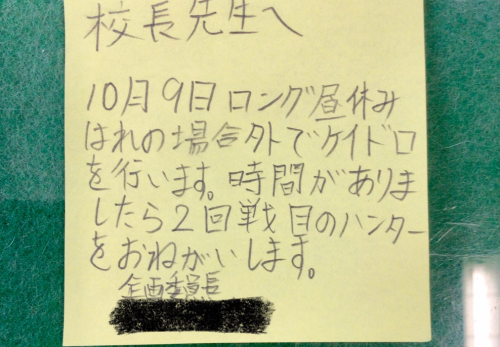 校長先生へ
10月9日ロング昼休み
はれの場合外でケイドロ
を行います。時間がありま
したら2回戦目のハンター
をおねがいします。
企画委員長